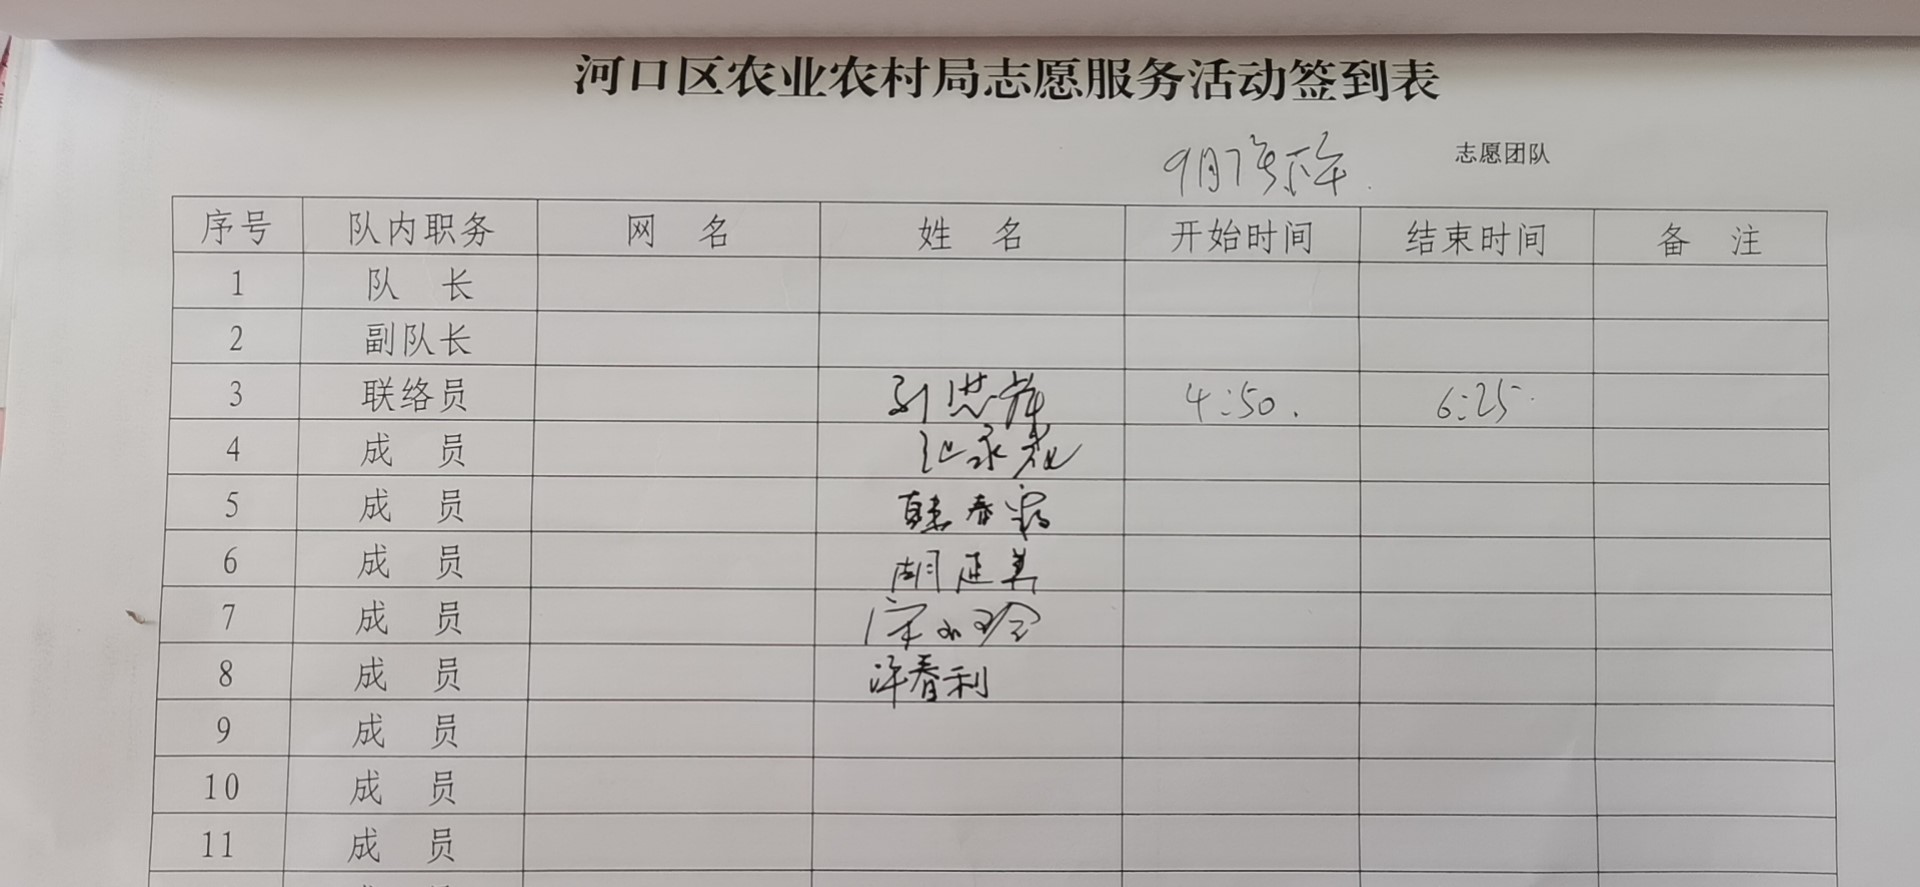 河口区农业农村局志愿服务活动签到表
9月7号下午 志愿团队
序号 队内职务 网 名 姓 名 开始时间 结束时间 备 注
1 队 长
2 副队长
3 联络员 4:50. 6:25
4 成 员
5 成 员 韩春霞
6 成 员 胡延美
7 成 员
8 成 员 许春利
9 成 员
10 成 员
11 成 员